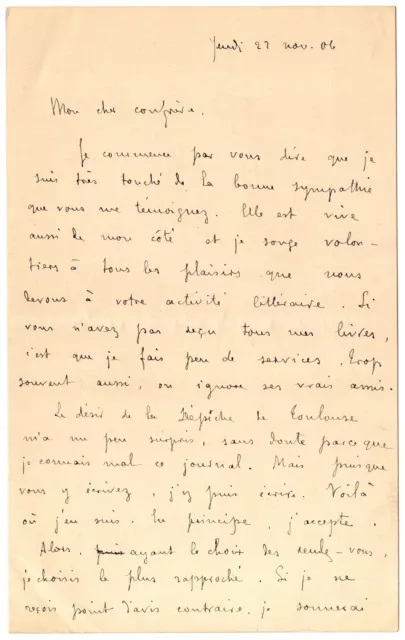 Jeudi 22 nov. 06
Mon cher confrère,
Je commence par vous dire que je
suis très touché de la bonne sympathie
que vous me témoignez. Elle est vive
aussi de mon côté et je songe volon-
tiers à tous les plaisirs que nous
devons à votre activité littéraire. Si
vous n'avez pas reçu tous mes livres,
c'est que je fais peu de services. Trop
souvent aussi, on ignore ses vrais amis.
Le désir de la Dépêche de Toulouse
m'a un peu surpris, sans doute parce que
je connais mal ce journal. Mais puisque
vous y écrivez, j'y puis écrire. Voilà
où j'en suis. En principe, j'accepte.
Alors, ayant le choix des rendez-vous,
je choisis le plus rapproché. Si je ne
reçois point d'avis contraire, je sonnerai